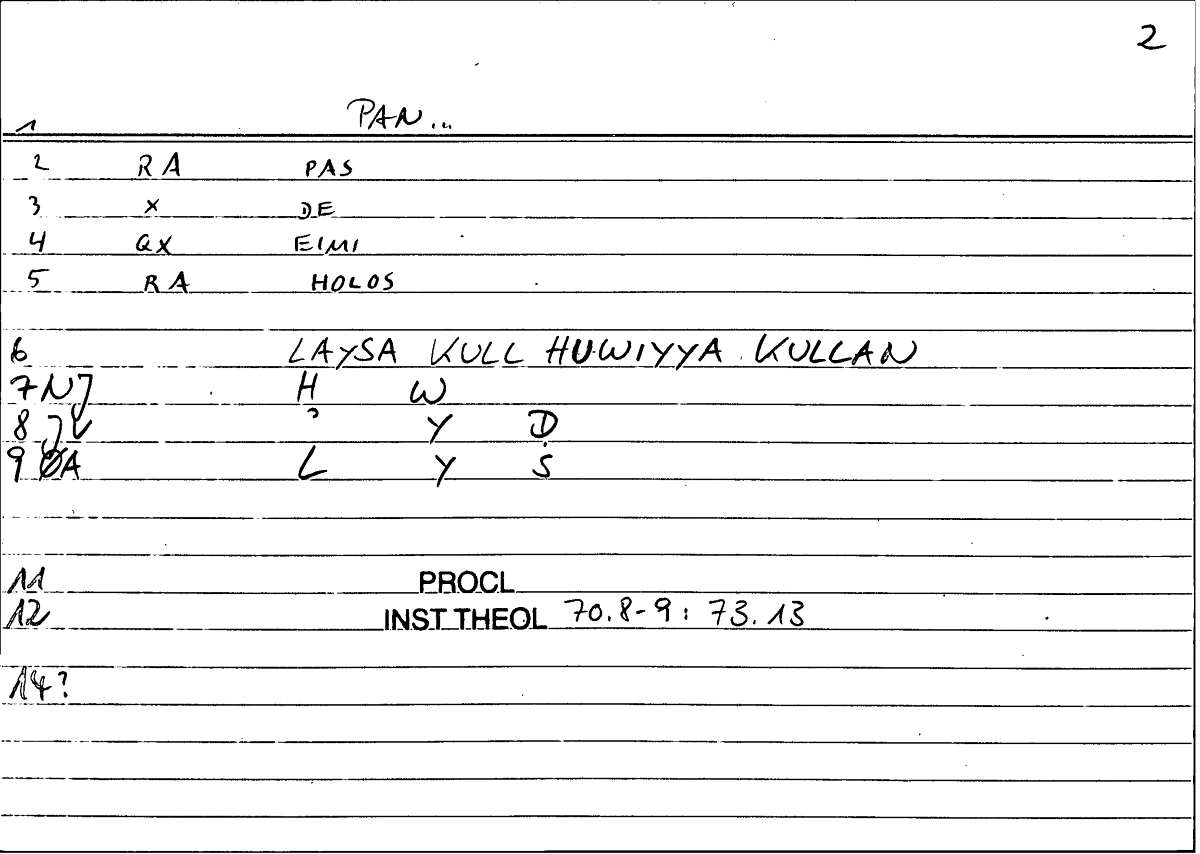 2
1 PAN...
2 RA PAS
3 X DE
4 QX EIMI
5 RA HOLOS
6 LAYSA KULL HUWIYYA KULLAN
7 NJ H W
8 JL ʾ Y D
9 ØA L Y S
11 PROCL
12 INST THEOL 70.8-9: 73.13
14?